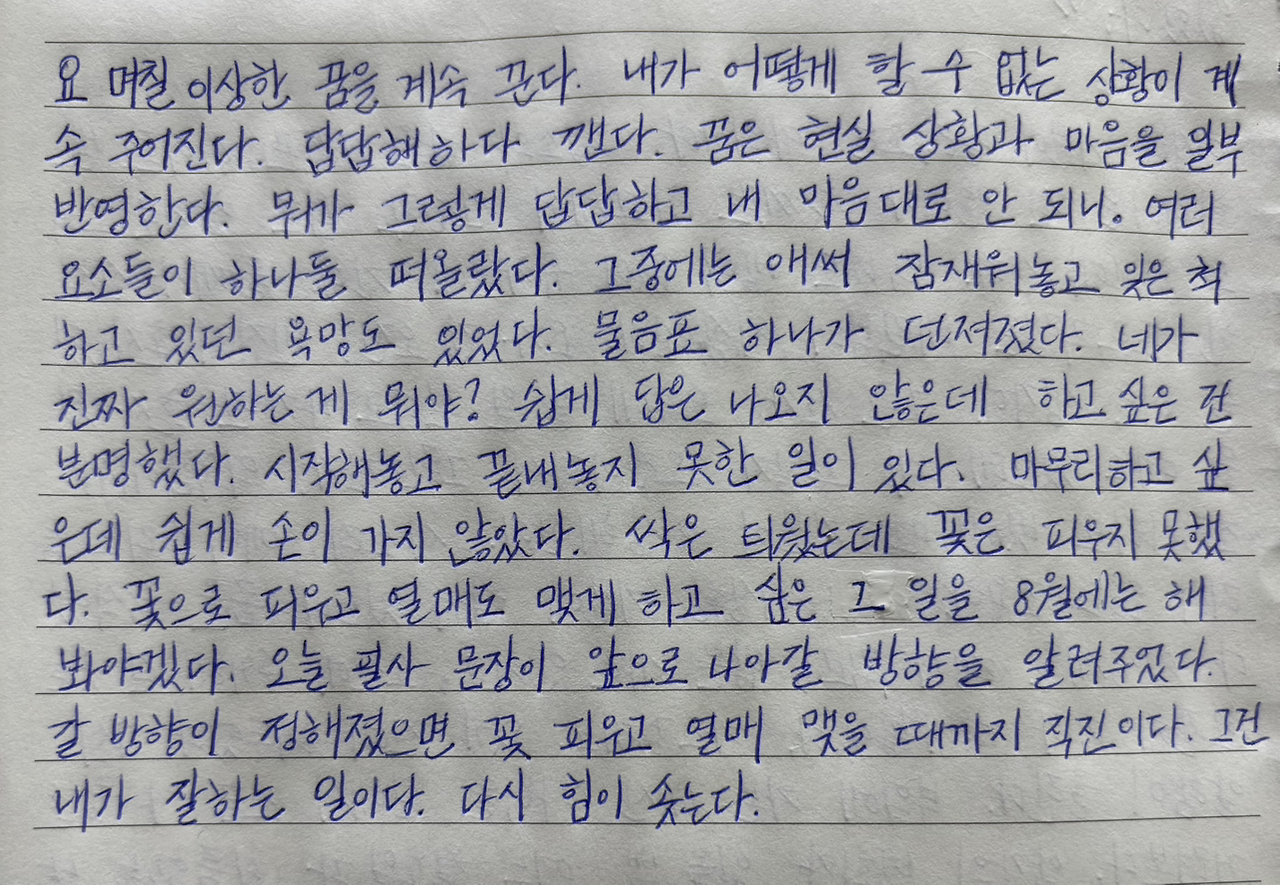 요 며칠 이상한 꿈을 계속 꾼다. 내가 어떻게 할 수 없는 상황이 계
속 주어진다. 답답해하다 깬다. 꿈은 현실 상황과 마음을 일부
반영한다. 뭐가 그렇게 답답하고 내 마음대로 안 되니. 여러
요소들이 하나둘 떠올랐다. 그중에는 애써 잠재워놓고 잊은 척
하고 있던 욕망도 있었다. 물음표 하나가 던져졌다. 네가
진짜 원하는 게 뭐야? 쉽게 답은 나오지 않은데 하고 싶은 건
분명했다. 시작해놓고 끝내놓지 못한 일이 있다. 마무리하고 싶
은데 쉽게 손이 가지 않았다. 싹은 틔웠는데 꽃은 피우지 못했
다. 꽃으로 피우고 열매도 맺게 하고 싶은 그 일을 8월에는 해
봐야겠다. 오늘 필사 문장이 앞으로 나아갈 방향을 알려주었다.
갈 방향이 정해졌으면 꽃 피우고 열매 맺을 때까지 직진이다. 그건
내가 잘하는 일이당. 다시 힘이 솟는다.